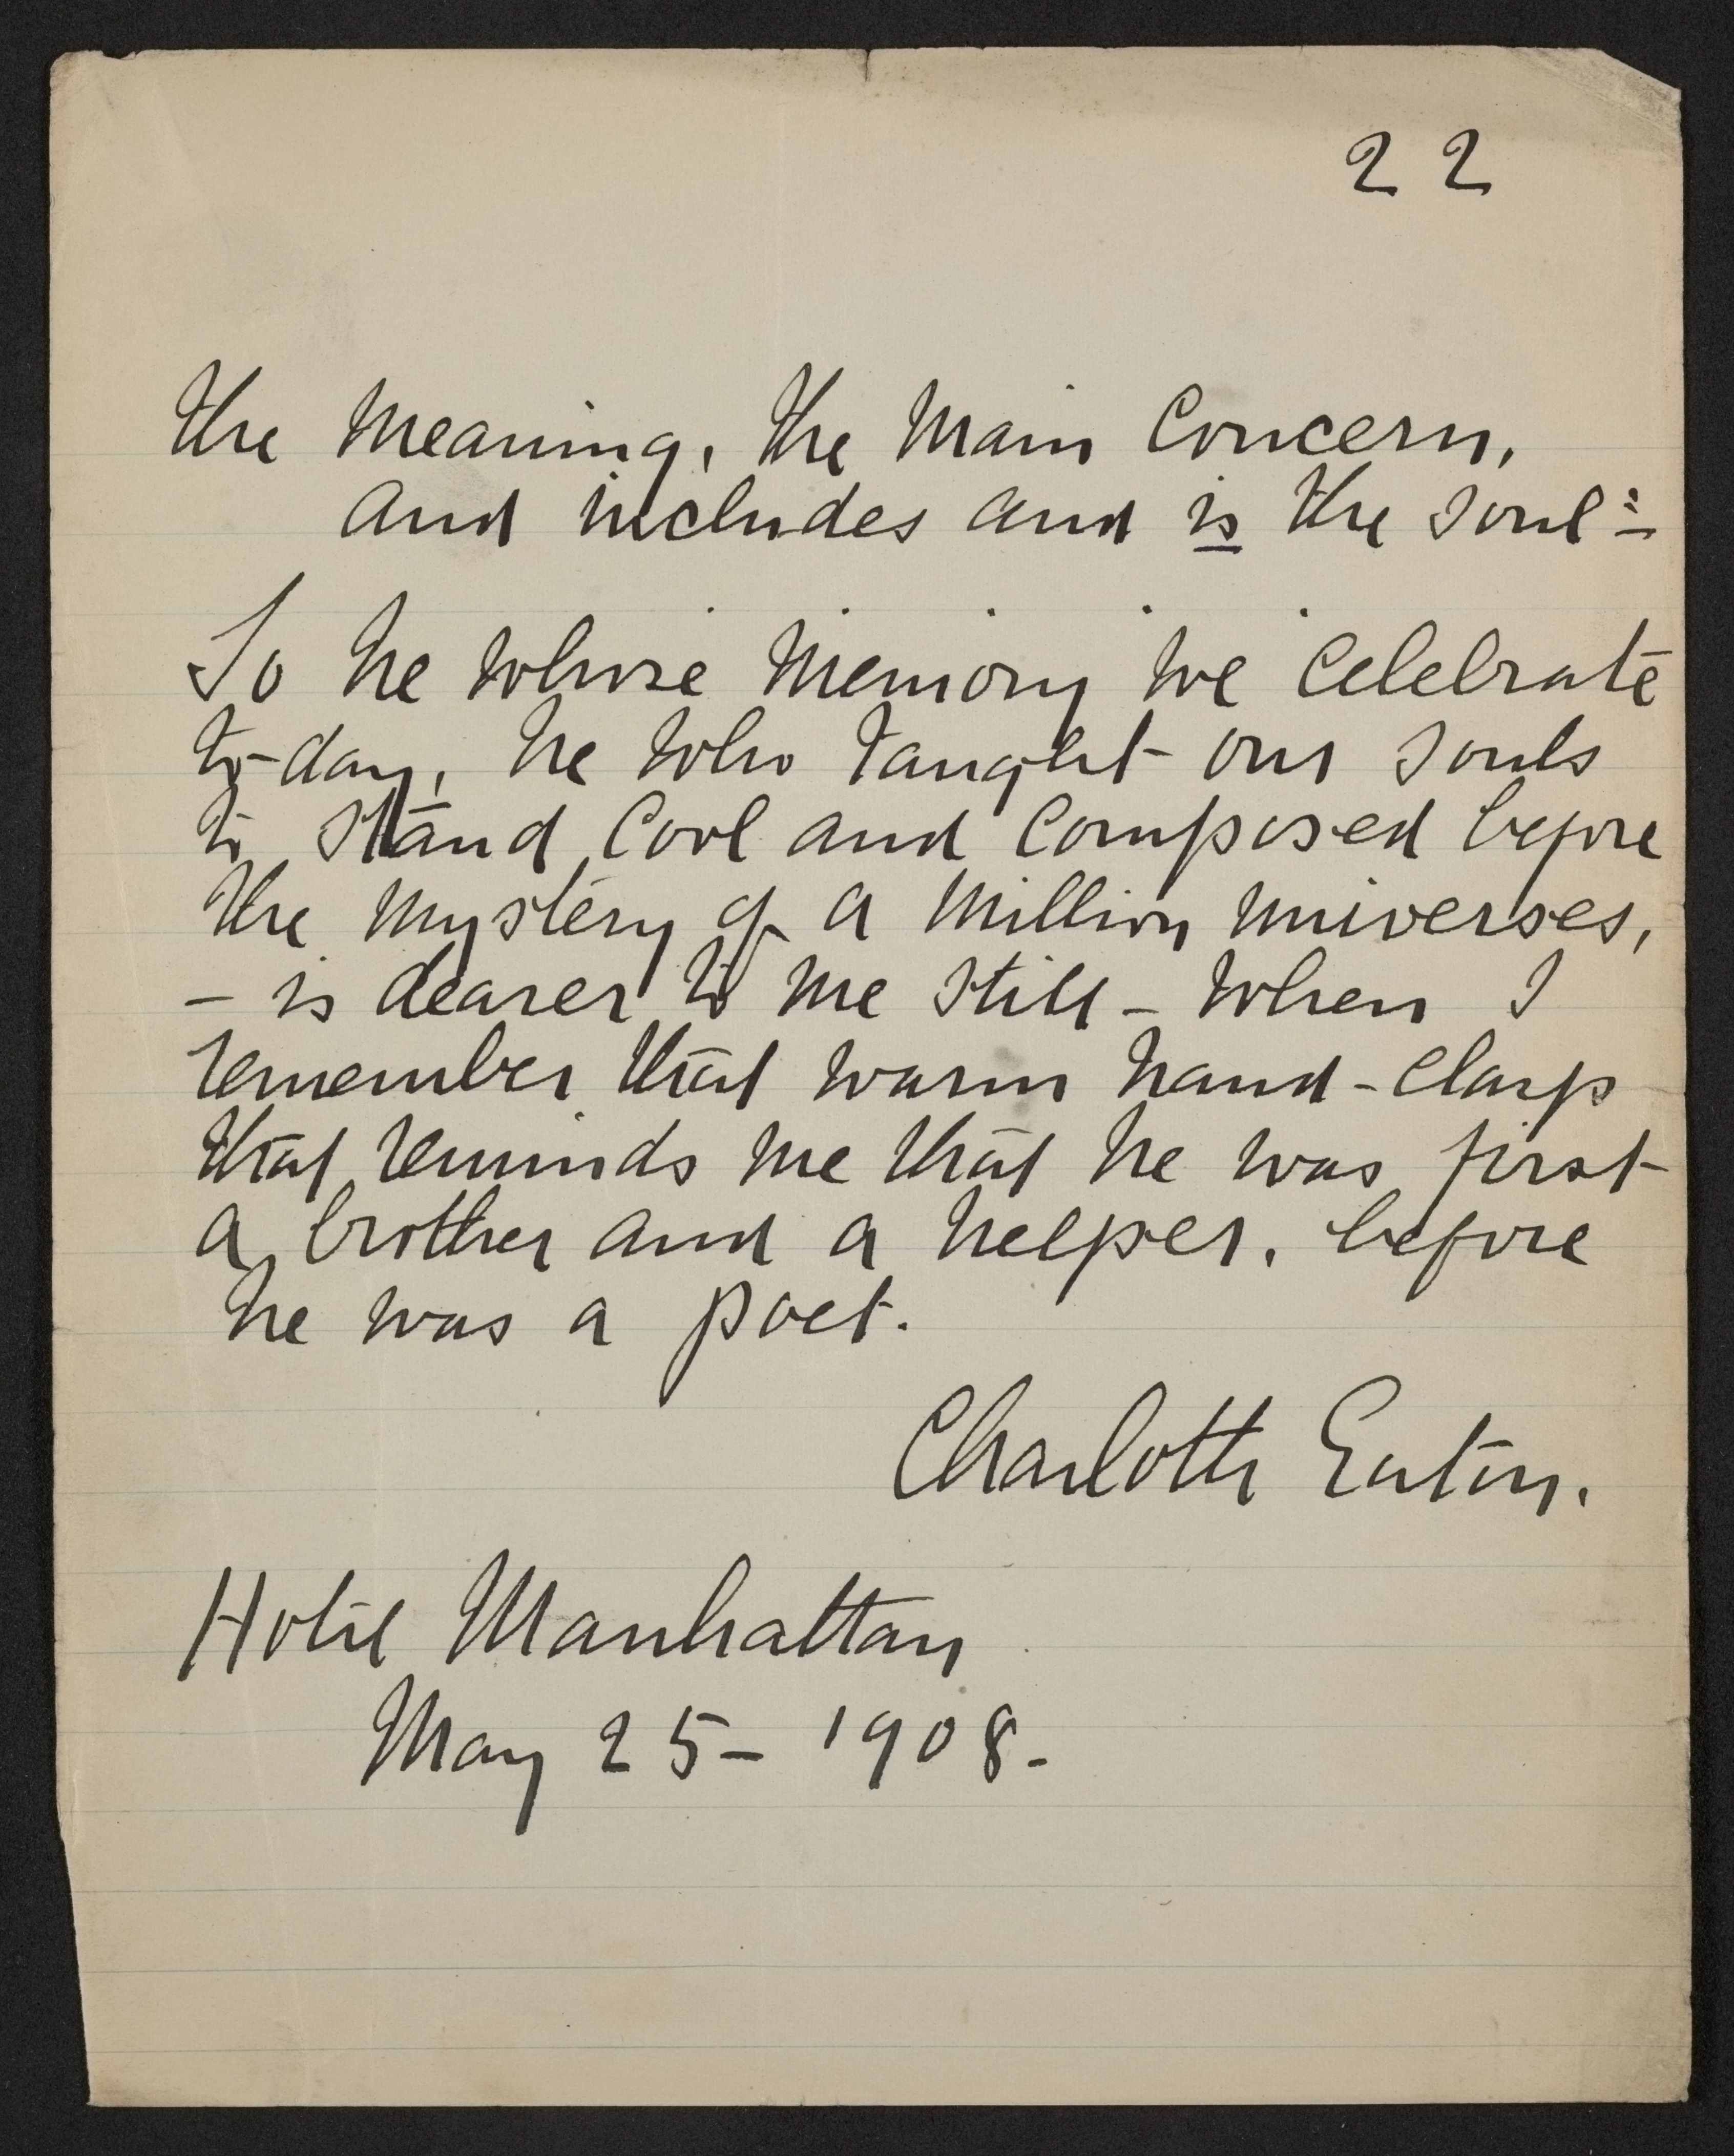 22
the meaning, the main concern,
and includes and is the soul:-
So he whose memory we celebrate
to-day, he who taught our souls
to stand cool and composed before
the mystery of a million universes,
- is dearer to me still - when I
remember that warm hand-clasp
that reminds me that he was first
a brother and a helper, before
he was a poet.
Charlotte Eaton.
Hotel Manhattan
May 25 - 1908.